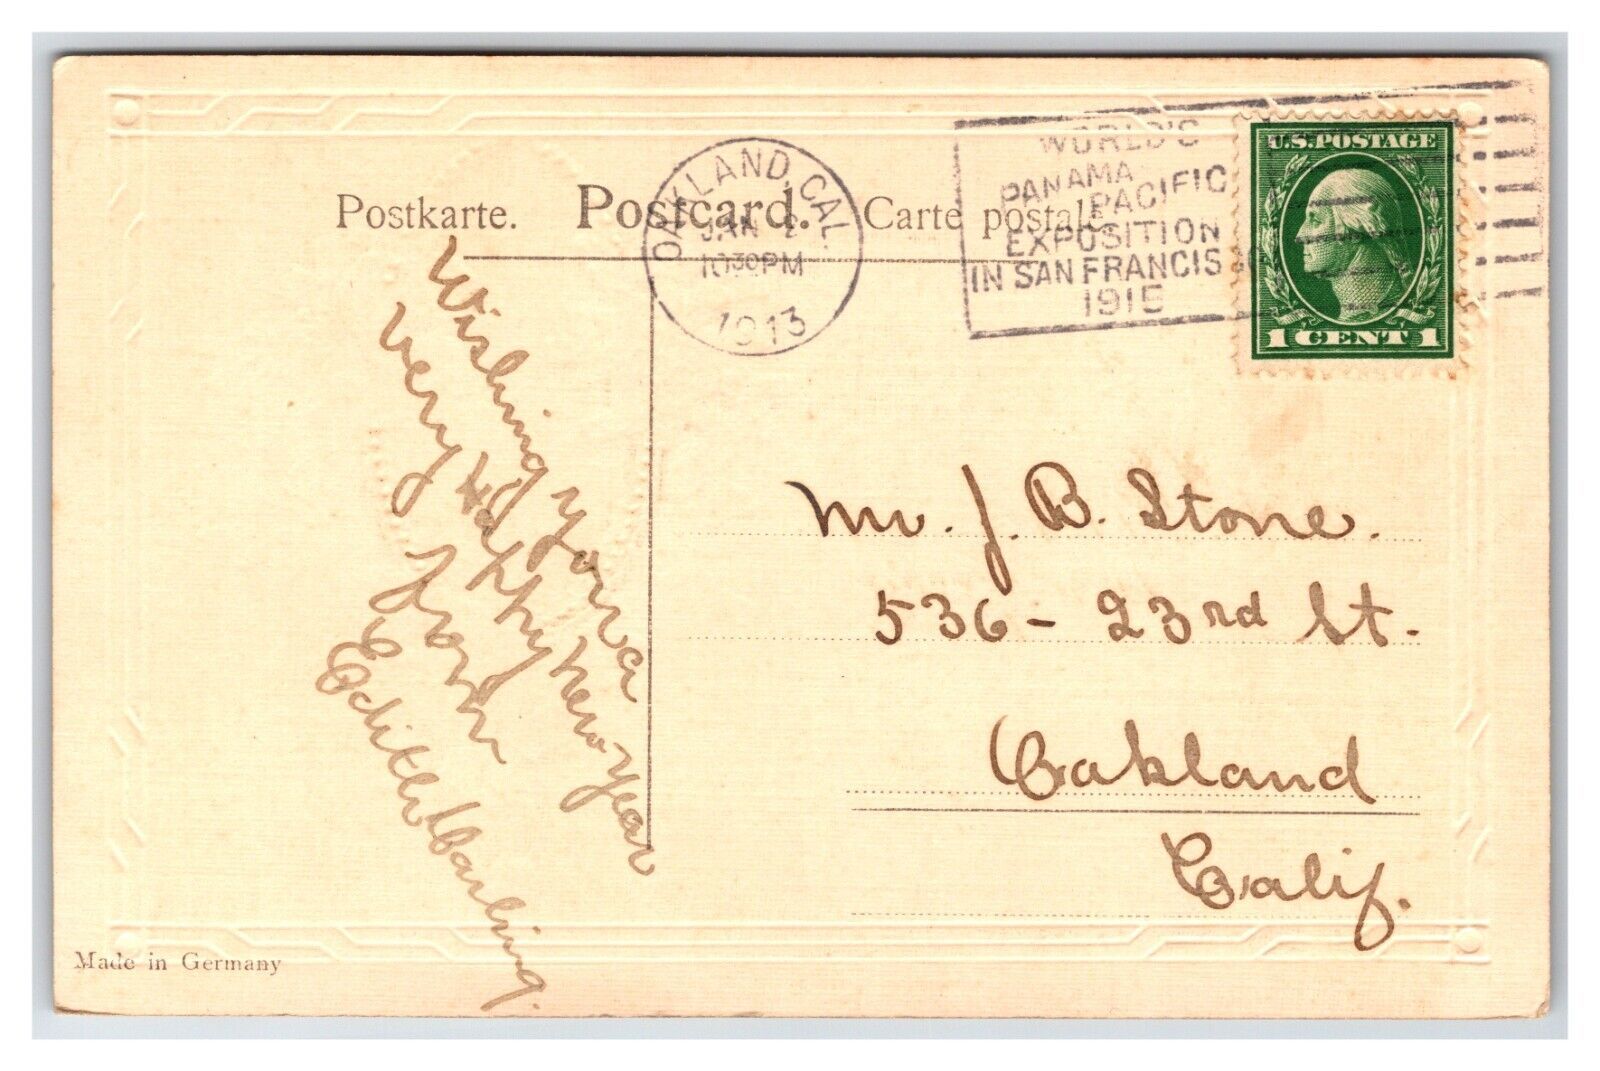 Postkarte. Postcard. Carte postale.
OAKLAND, CAL.
JAN 2
1030PM
1913
WORLD'S
PANAMA
PACIFIC
EXPOSITION
IN SAN FRANCISCO
1915
U.S. POSTAGE
1 CENT 1
Wishing you a
very Happy New Year
from
Edith Carling.
Mr. J. B. Stone.
536 - 23rd St.
Oakland
Calif.
Made in Germany